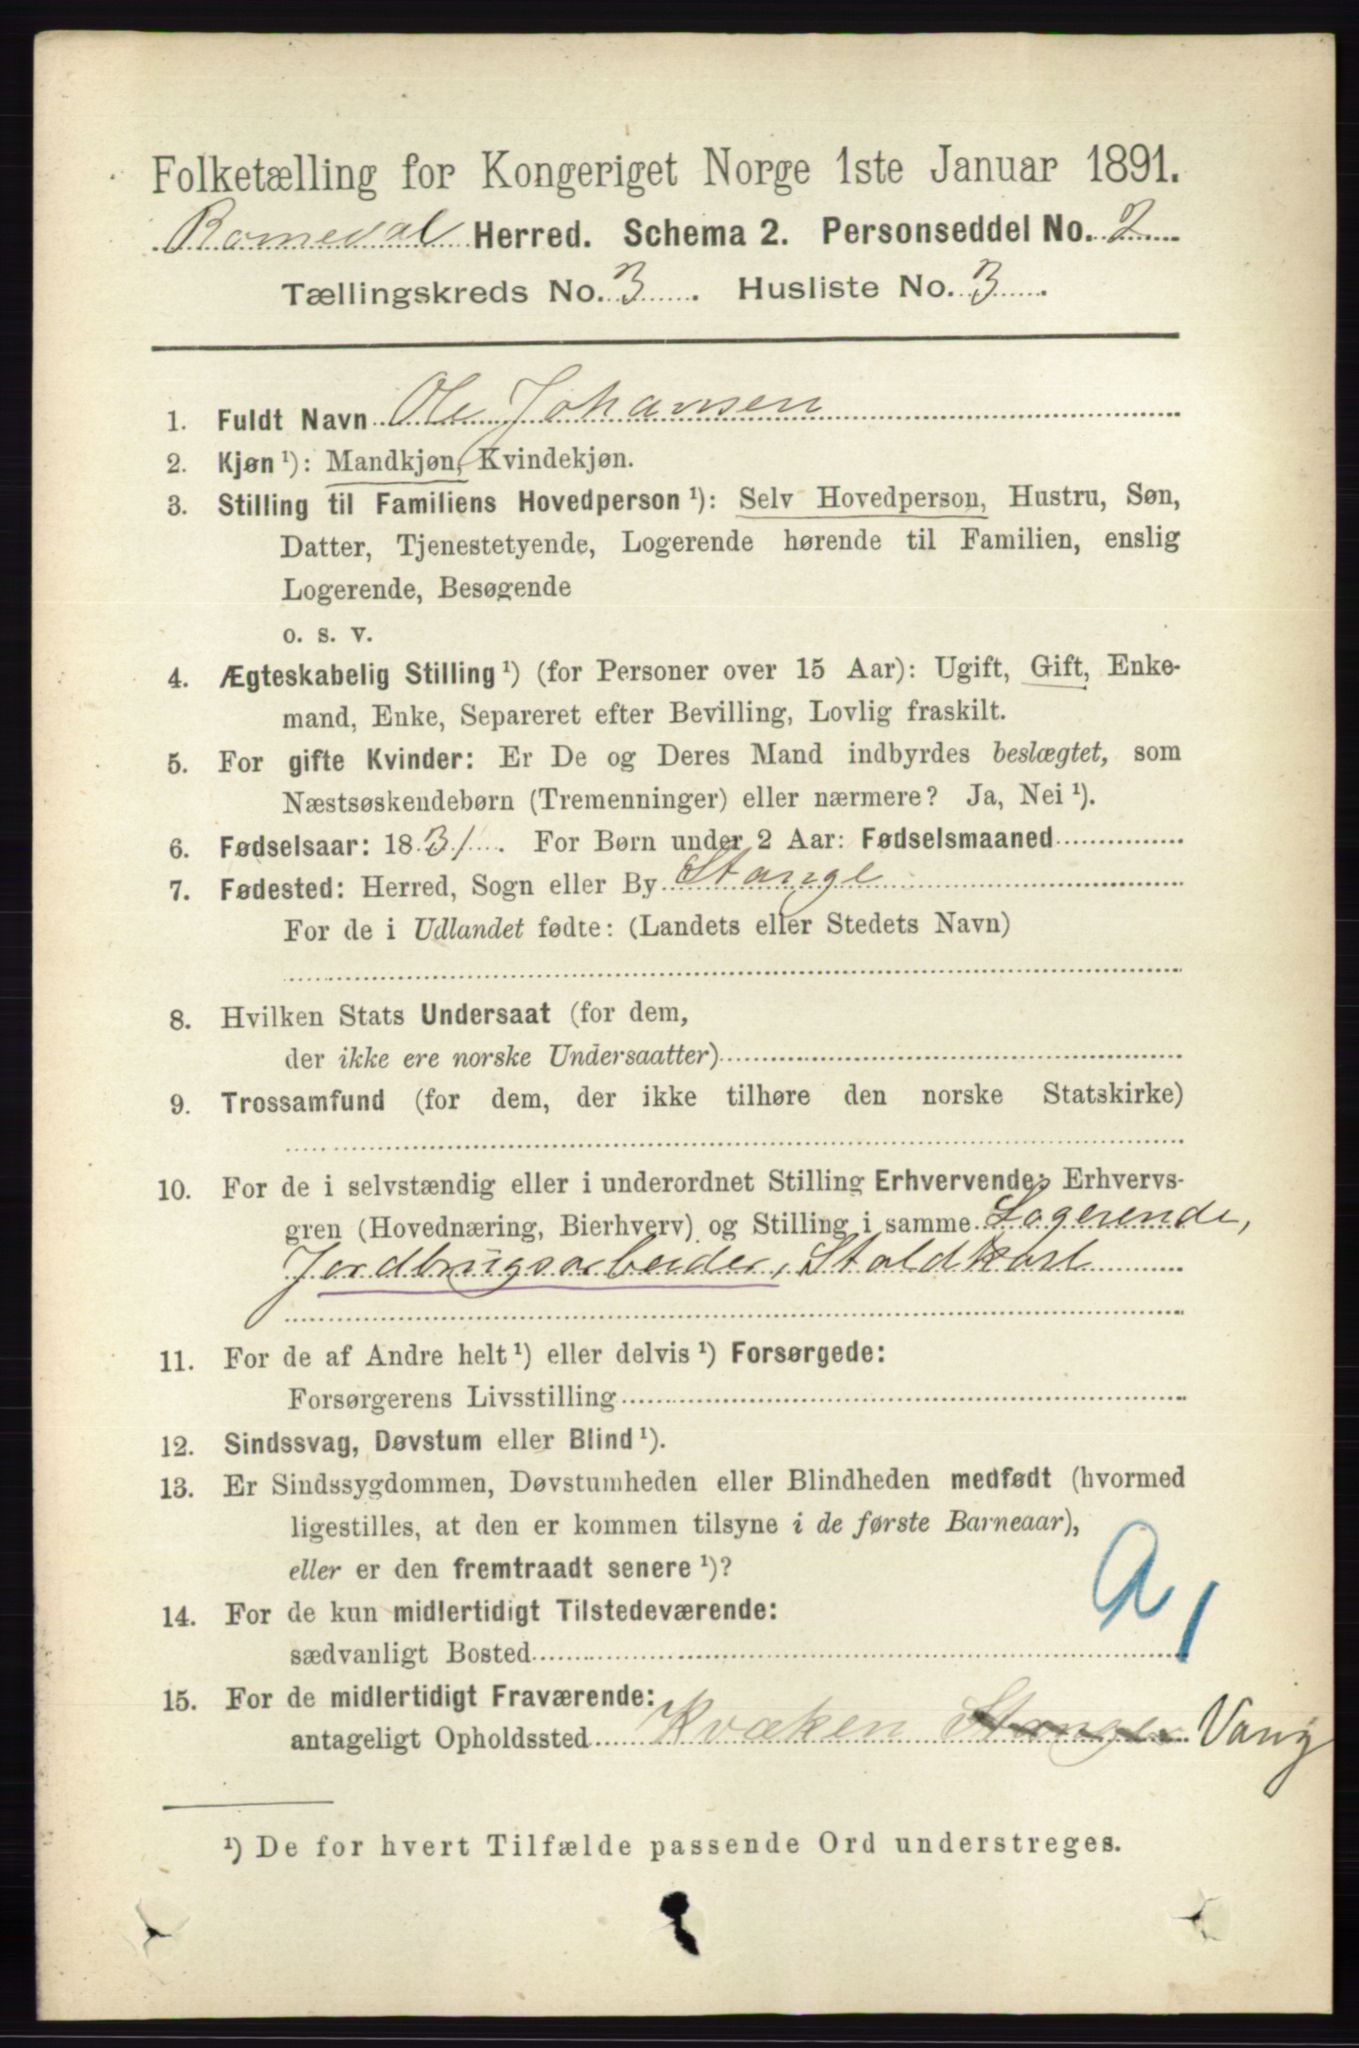 Folketælling for Kongeriget Norge 1ste Januar 1891.
Romedal Herred. Schema 2. Personseddel No. 2
Tællingskreds No. 3. Husliste No. 3.
1. Fuldt Navn Ole Johansen
2. Kjøn¹): Mandkjøn, Kvindekjøn.
3. Stilling til Familiens Hovedperson¹): Selv Hovedperson, Hustru, Søn,
Datter, Tjenestetyende, Logerende hørende til Familien, enslig
Logerende, Besøgende
o. s. v.
4. Ægteskabelig Stilling¹) (for Personer over 15 Aar): Ugift, Gift, Enke-
mand, Enke, Separeret efter Bevilling, Lovlig fraskilt.
5. For gifte Kvinder: Er De og Deres Mand indbyrdes beslægtet, som
Næstsøskendebørn (Tremenninger) eller nærmere? Ja, Nei¹).
6. Fødselsaar: 1831. For Børn under 2 Aar: Fødselsmaaned
7. Fødested: Herred, Sogn eller By Stange
For de i Udlandet fødte: (Landets eller Stedets Navn)
8. Hvilken Stats Undersaat (for dem,
der ikke ere norske Undersaatter)
9. Trossamfund (for dem, der ikke tilhøre den norske Statskirke)
10. For de i selvstændig eller i underordnet Stilling Erhvervende: Erhvervs-
gren (Hovednæring, Bierhverv) og Stilling i samme Logerende,
Jordbrugsarbeider, Staldkarl
11. For de af Andre helt¹) eller delvis¹) Forsørgede:
Forsørgerens Livsstilling
12. Sindssvag, Døvstum eller Blind¹).
13. Er Sindssygdommen, Døvstumheden eller Blindheden medfødt (hvormed
ligestilles, at den er kommen tilsyne i de første Barneaar),
eller er den fremtraadt senere¹)?
14. For de kun midlertidigt Tilstedeværende:
sædvanligt Bosted
15. For de midlertidigt Fraværende:
antageligt Opholdssted Kvæken Stange Vang
¹) De for hvert Tilfælde passende Ord understreges.